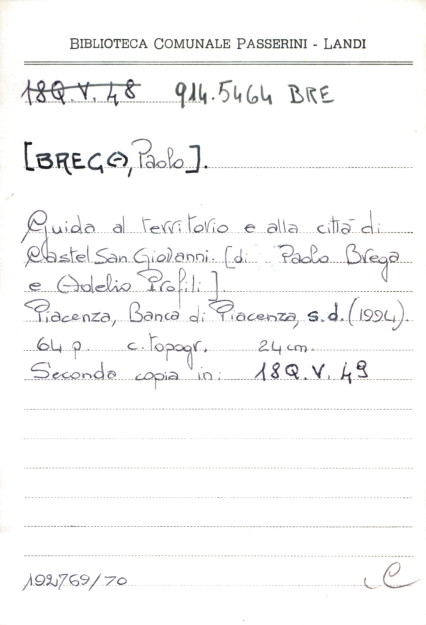 BIBLIOTECA COMUNALE PASSERINI - LANDI
18Q.V.48 914.5464 BRE
[BREGA, Paolo].
Guida al territorio e alla città di
Castel San Giovanni. [di Paolo Brega
e Adelio Profili].
Piacenza, Banca di Piacenza, s.d. (1994).
64 p. c. topogr. 24 cm.
Seconda copia in: 18Q.V.49
192769/70 C